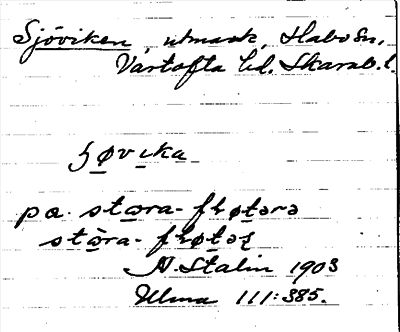 Sjöviken, utmark, Habo Sn,
Vartofta hd. Skarab. l.
ʃøvika
pa stora-
stora-
N. Stalin 1903
Ulma 111:385.